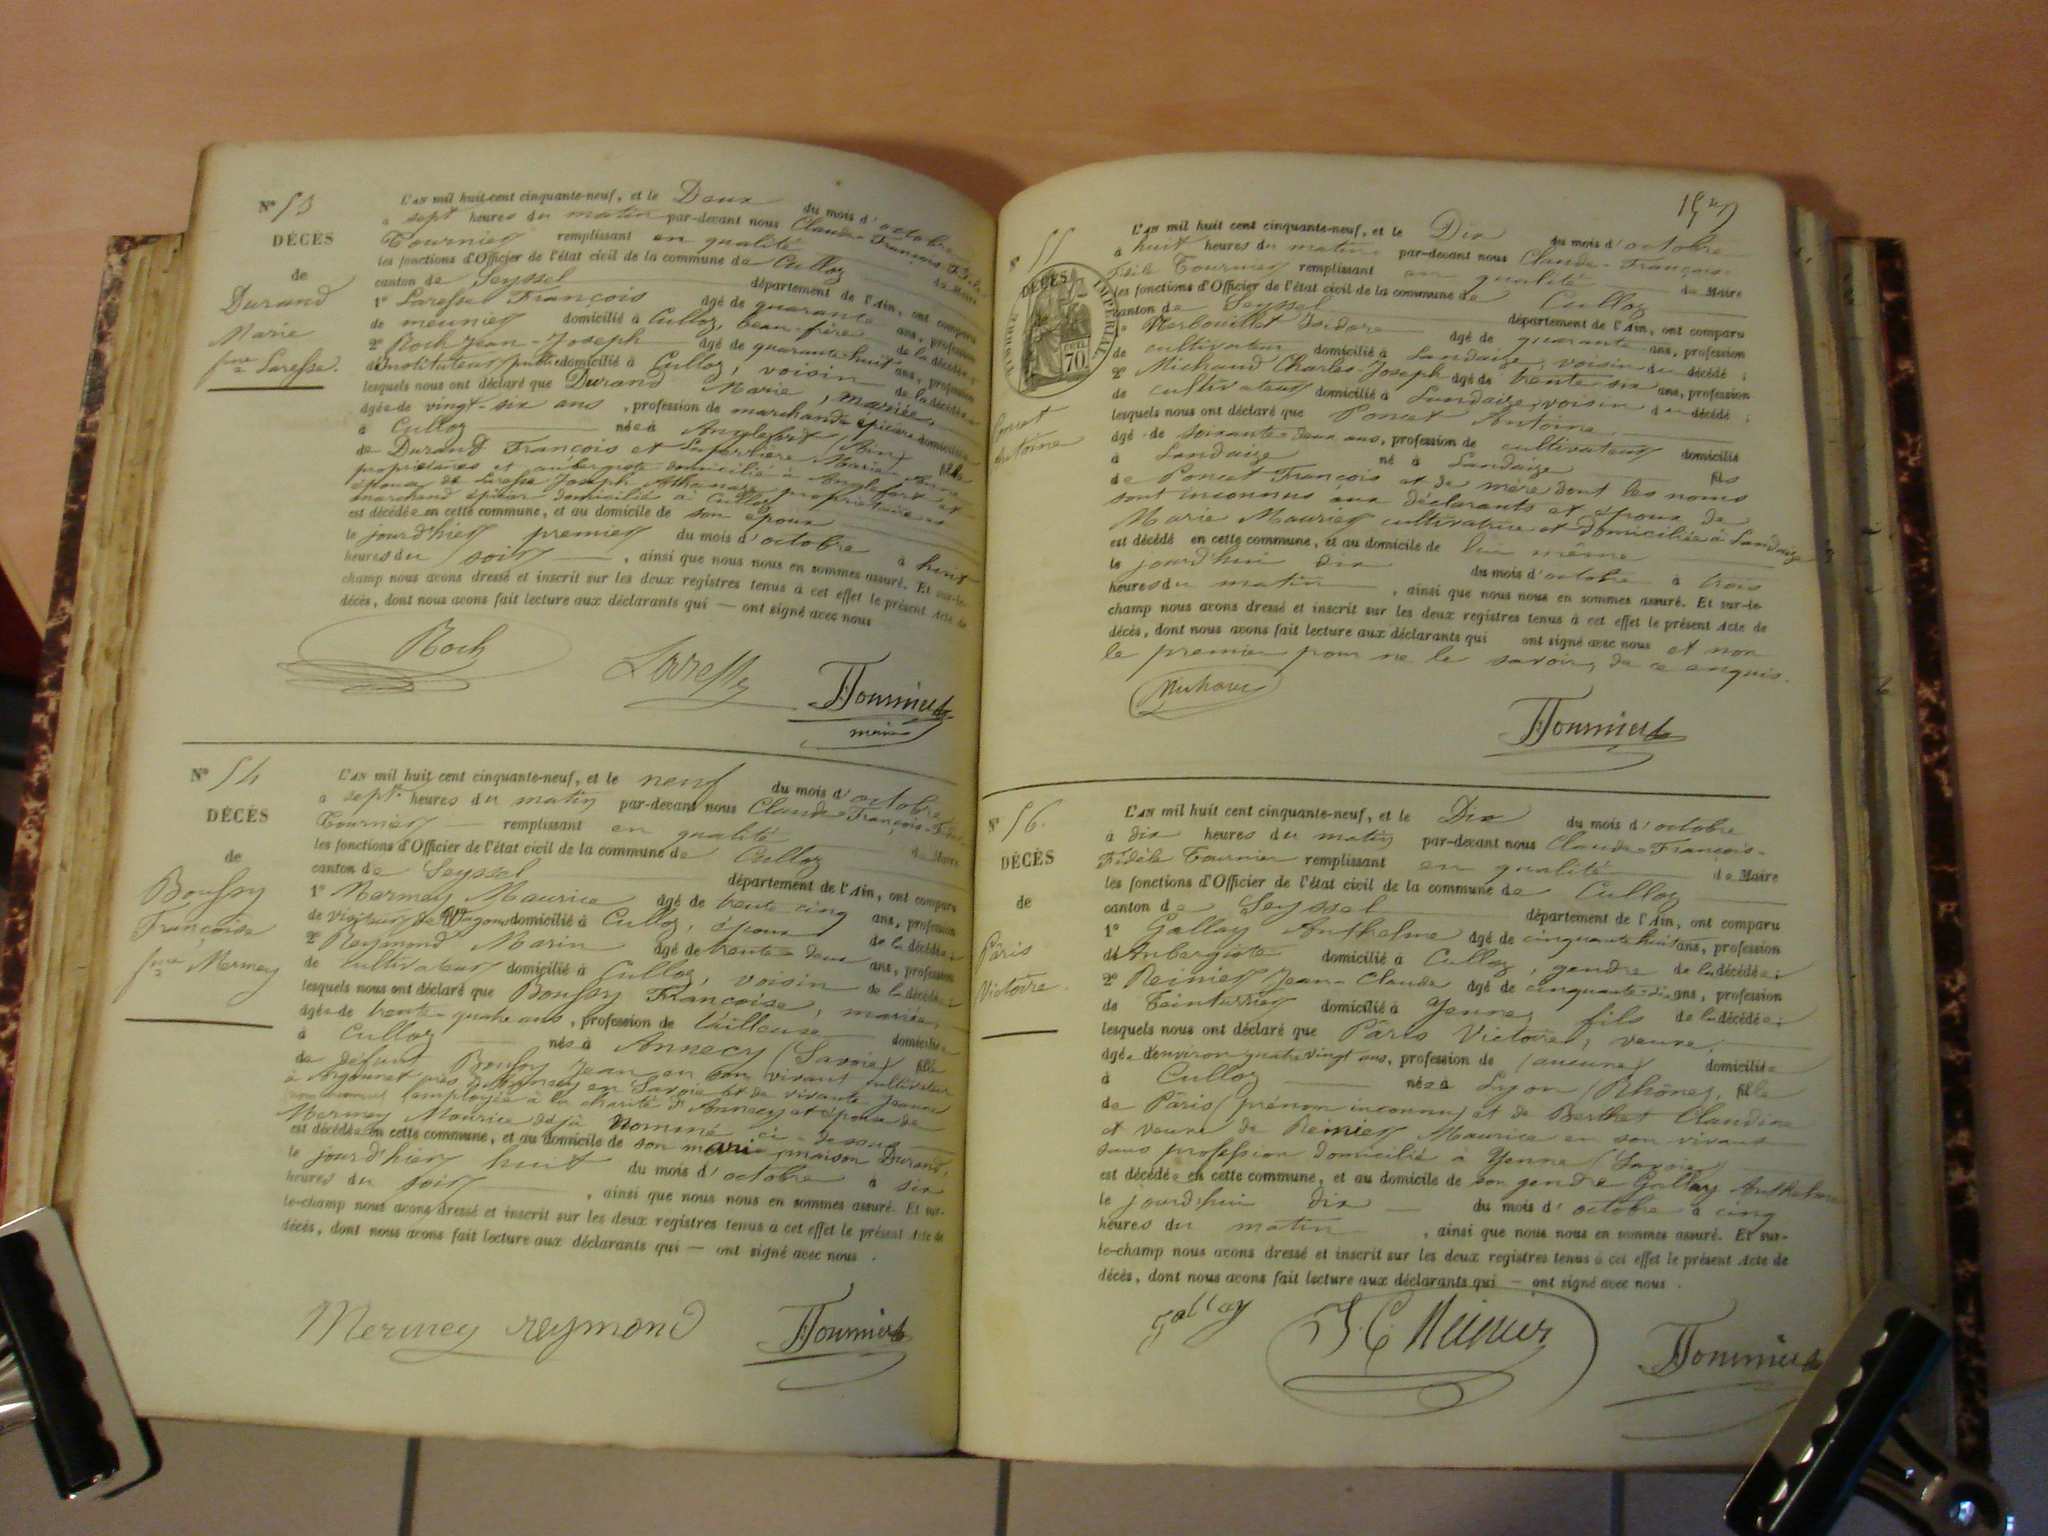 Nº 53
DÉCÈS
de
Durand
Marie
fme Laresse.
L'AN mil huit cent cinquante-neuf, et le Deux du mois d'octobre
à sept heures du matin par-devant nous Claude-François-Fidèle
Tournier remplissant en qualité de Maire
les fonctions d'Officier de l'état civil de la commune de Culloz
canton de Seyssel département de l'Ain, ont comparu
1º Laresse François âgé de quarante ans, profession
de meunier domicilié à Culloz, beau-frère de la décédée;
2º Roch Jean-Joseph âgé de quarante huit ans, profession
d'instituteur public domicilié à Culloz, voisin de la décédée
lesquels nous ont déclaré que Durand Marie, mariée,
âgée de vingt-six ans, profession de marchande épicière domiciliée
à Culloz née à Anglefort (Ain) fille
de Durand François et Marie-Anne
propriétaires et aubergiste domicilié à Anglefort et
épouse de Laresse Joseph Athanase propriétaire et
marchand épicier domicilié à Culloz
est décédée en cette commune, et au domicile de son époux
le jourd'hier premier du mois d'octobre à huit
heures du soir, ainsi que nous nous en sommes assuré. Et sur-le-
champ nous avons dressé et inscrit sur les deux registres tenus à cet effet le présent Acte de
décès, dont nous avons fait lecture aux déclarants qui — ont signé avec nous
Roch Laresse FTournier
maire
Nº 54
DÉCÈS
de
Boussy
Françoise
fme Mermey
L'AN mil huit cent cinquante-neuf, et le neuf du mois d'octobre
à sept heures du matin par-devant nous Claude-François-Fidèle
Tournier — remplissant en qualité de Maire
les fonctions d'Officier de l'état civil de la commune de Culloz
canton de Seyssel département de l'Ain, ont comparu
1º Mermey Maurice âgé de trente cinq ans, profession
de visiteur de Wagons domicilié à Culloz, époux de la décédée;
2º Reymond Marin âgé de trente-deux ans, profession
de cultivateur domicilié à Culloz, voisin de la décédée;
lesquels nous ont déclaré que Boussy Françoise, mariée,
âgée de trente-quatre ans, profession de tailleuse domiciliée
à Culloz née à Annecy (Savoie) fille
de défunt Boussy Jean en son vivant cultivateur
à près d'Annecy en Savoie et de vivante Jeanne
employée à la charité d'Annecy et épouse de
Mermey Maurice déjà nommé ci-dessus
est décédée en cette commune, et au domicile de son mari, maison Durand,
le jourd'hier huit du mois d'octobre à six
heures du soir, ainsi que nous nous en sommes assuré. Et sur-
le-champ nous avons dressé et inscrit sur les deux registres tenus à cet effet le présent Acte de
décès, dont nous avons fait lecture aux déclarants qui — ont signé avec nous.
Mermey reymond FTournier
Nº 55
DÉCÈS
TIMBRE IMPÉRIAL
70
Poncet
Antoine
L'AN mil huit cent cinquante-neuf, et le Dix du mois d'octobre
à huit heures du matin par-devant nous Claude-François-
Fidèle Tournier remplissant en qualité de Maire
les fonctions d'Officier de l'état civil de la commune de Culloz
canton de Seyssel département de l'Ain, ont comparu
1º Isidore âgé de quarante ans, profession
de cultivateur domicilié à Landaize, voisin du décédé;
2º Michaud Charles-Joseph âgé de trente-six ans, profession
de cultivateur domicilié à Landaize, voisin du décédé;
lesquels nous ont déclaré que Poncet Antoine
âgé de soixante-deux ans, profession de cultivateur domicilié
à Landaize né à Landaize fils
de Poncet François et de mère dont les noms
sont inconnus aux déclarants et époux de
Marie Maurier cultivatrice et domiciliée à Landaize
est décédé en cette commune, et au domicile de lui même
le jourd'hui dix du mois d'octobre à trois
heures du matin, ainsi que nous nous en sommes assuré. Et sur-le-
champ nous avons dressé et inscrit sur les deux registres tenus à cet effet le présent Acte de
décès, dont nous avons fait lecture aux déclarants qui ont signé avec nous et non
le premier pour ne le savoir, de ce enquis.
FTournier
Nº 56.
DÉCÈS
de
Pâris
Victoire.
L'AN mil huit cent cinquante-neuf, et le Dix du mois d'octobre
à dix heures du matin par-devant nous Claude-François-
Fidèle Tournier remplissant en qualité de Maire
les fonctions d'Officier de l'état civil de la commune de Culloz
canton de Seyssel département de l'Ain, ont comparu
1º Gallay Anthelme âgé de cinquante huit ans, profession
d'Aubergiste domicilié à Culloz, gendre de la décédée;
2º Reinier Jean-Claude âgé de cinquante-dix ans, profession
de Teinturier domicilié à Yenne, fils de la décédée;
lesquels nous ont déclaré que Pâris Victoire, veuve,
âgée d'environ quatre vingt ans, profession de (aucune) domiciliée
à Culloz née à Lyon (Rhône), fille
de Pâris (prénom inconnu) et de Berthet Claudine
et veuve de Reinier Maurice en son vivant
sans profession domicilié à Yenne (Savoie)
est décédée en cette commune, et au domicile de son gendre Gallay Anthelme
le jourd'hui dix — du mois d'octobre à cinq
heures du matin, ainsi que nous nous en sommes assuré. Et sur-
le-champ nous avons dressé et inscrit sur les deux registres tenus à cet effet le présent Acte de
décès, dont nous avons fait lecture aux déclarants qui — ont signé avec nous.
Gallay J C Reinier FTournier